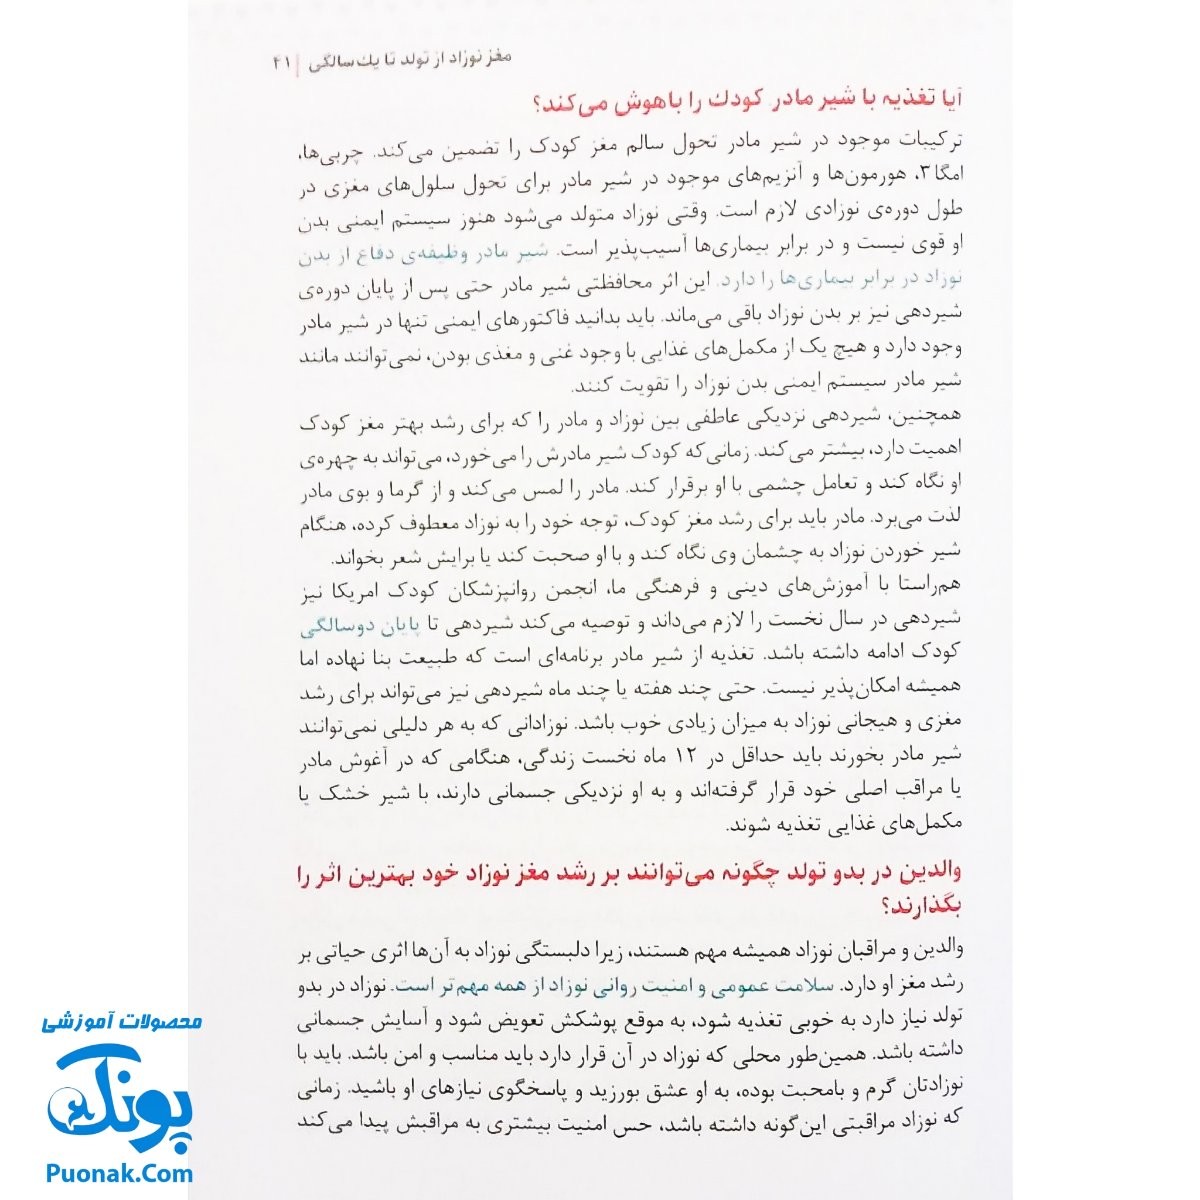 مغز نوزاد از تولد تا یك سالگی | ۴۱
آیا تغذیه با شیر مادر کودك را باهوش می‌کند؟
ترکیبات موجود در شیر مادر تحول سالم مغز کودک را تضمین می‌کند. چربی‌ها،
امگا ۳، هورمون‌ها و آنزیم‌های موجود در شیر مادر برای تحول سلول‌های مغزی در
طول دوره‌ی نوزادی لازم است. وقتی نوزاد متولد می‌شود هنوز سیستم ایمنی بدن
او قوی نیست و در برابر بیماری‌ها آسیب‌پذیر است. شیر مادر وظیفه‌ی دفاع از بدن
نوزاد در برابر بیماری‌ها را دارد. این اثر محافظتی شیر مادر حتی پس از پایان دوره‌ی
شیردهی نیز بر بدن نوزاد باقی می‌ماند. باید بدانید فاکتورهای ایمنی تنها در شیر مادر
وجود دارد و هیچ یک از مکمل‌های غذایی با وجود غنی و مغذی بودن، نمی‌توانند مانند
شیر مادر سیستم ایمنی بدن نوزاد را تقویت کنند.
همچنین، شیردهی نزدیکی عاطفی بین نوزاد و مادر را که برای رشد بهتر مغز کودک
اهمیت دارد، بیشتر می‌کند. زمانی‌که کودک شیر مادرش را می‌خورد، می‌تواند به چهره‌ی
او نگاه کند و تعامل چشمی با او برقرار کند. مادر را لمس می‌کند و از گرما و بوی مادر
لذت می‌برد. مادر باید برای رشد مغز کودک، توجه خود را به نوزاد معطوف کرده، هنگام
شیر خوردن نوزاد به چشمان وی نگاه کند و با او صحبت کند یا برایش شعر بخواند.
هم‌راستا با آموزش‌های دینی و فرهنگی ما، انجمن روانپزشکان کودک امریکا نیز
شیردهی در سال نخست را لازم می‌داند و توصیه می‌کند شیردهی تا پایان دوسالگی
کودک ادامه داشته باشد. تغذیه از شیر مادر برنامه‌ای است که طبیعت بنا نهاده اما
همیشه امکان‌پذیر نیست. حتی چند هفته یا چند ماه شیردهی نیز می‌تواند برای رشد
مغزی و هیجانی نوزاد به میزان زیادی خوب باشد. نوزادانی که به هر دلیلی نمی‌توانند
شیر مادر بخورند باید حداقل در ۱۲ ماه نخست زندگی، هنگامی که در آغوش مادر
یا مراقب اصلی خود قرار گرفته‌اند و به او نزدیکی جسمانی دارند، با شیر خشک یا
مکمل‌های غذایی تغذیه شوند.
والدین در بدو تولد چگونه می‌توانند بر رشد مغز نوزاد خود بهترین اثر را
بگذارند؟
والدین و مراقبان نوزاد همیشه مهم هستند، زیرا دلبستگی نوزاد به آن‌ها اثری حیاتی بر
رشد مغز او دارد. سلامت عمومی و امنیت روانی نوزاد از همه مهم‌تر است. نوزاد در بدو
تولد نیاز دارد به خوبی تغذیه شود، به موقع پوشکش تعویض شود و آسایش جسمانی
داشته باشد. همین‌طور محلی که نوزاد در آن قرار دارد باید مناسب و امن باشد. باید با
نوزادتان گرم و بامحبت بوده، به او عشق بورزید و پاسخگوی نیازهای او باشید. زمانی
که نوزاد مراقبتی این‌گونه داشته باشد، حس امنیت بیشتری به مراقبش پیدا می‌کند
محصولات آموزشی
پونک
Puonak.Com